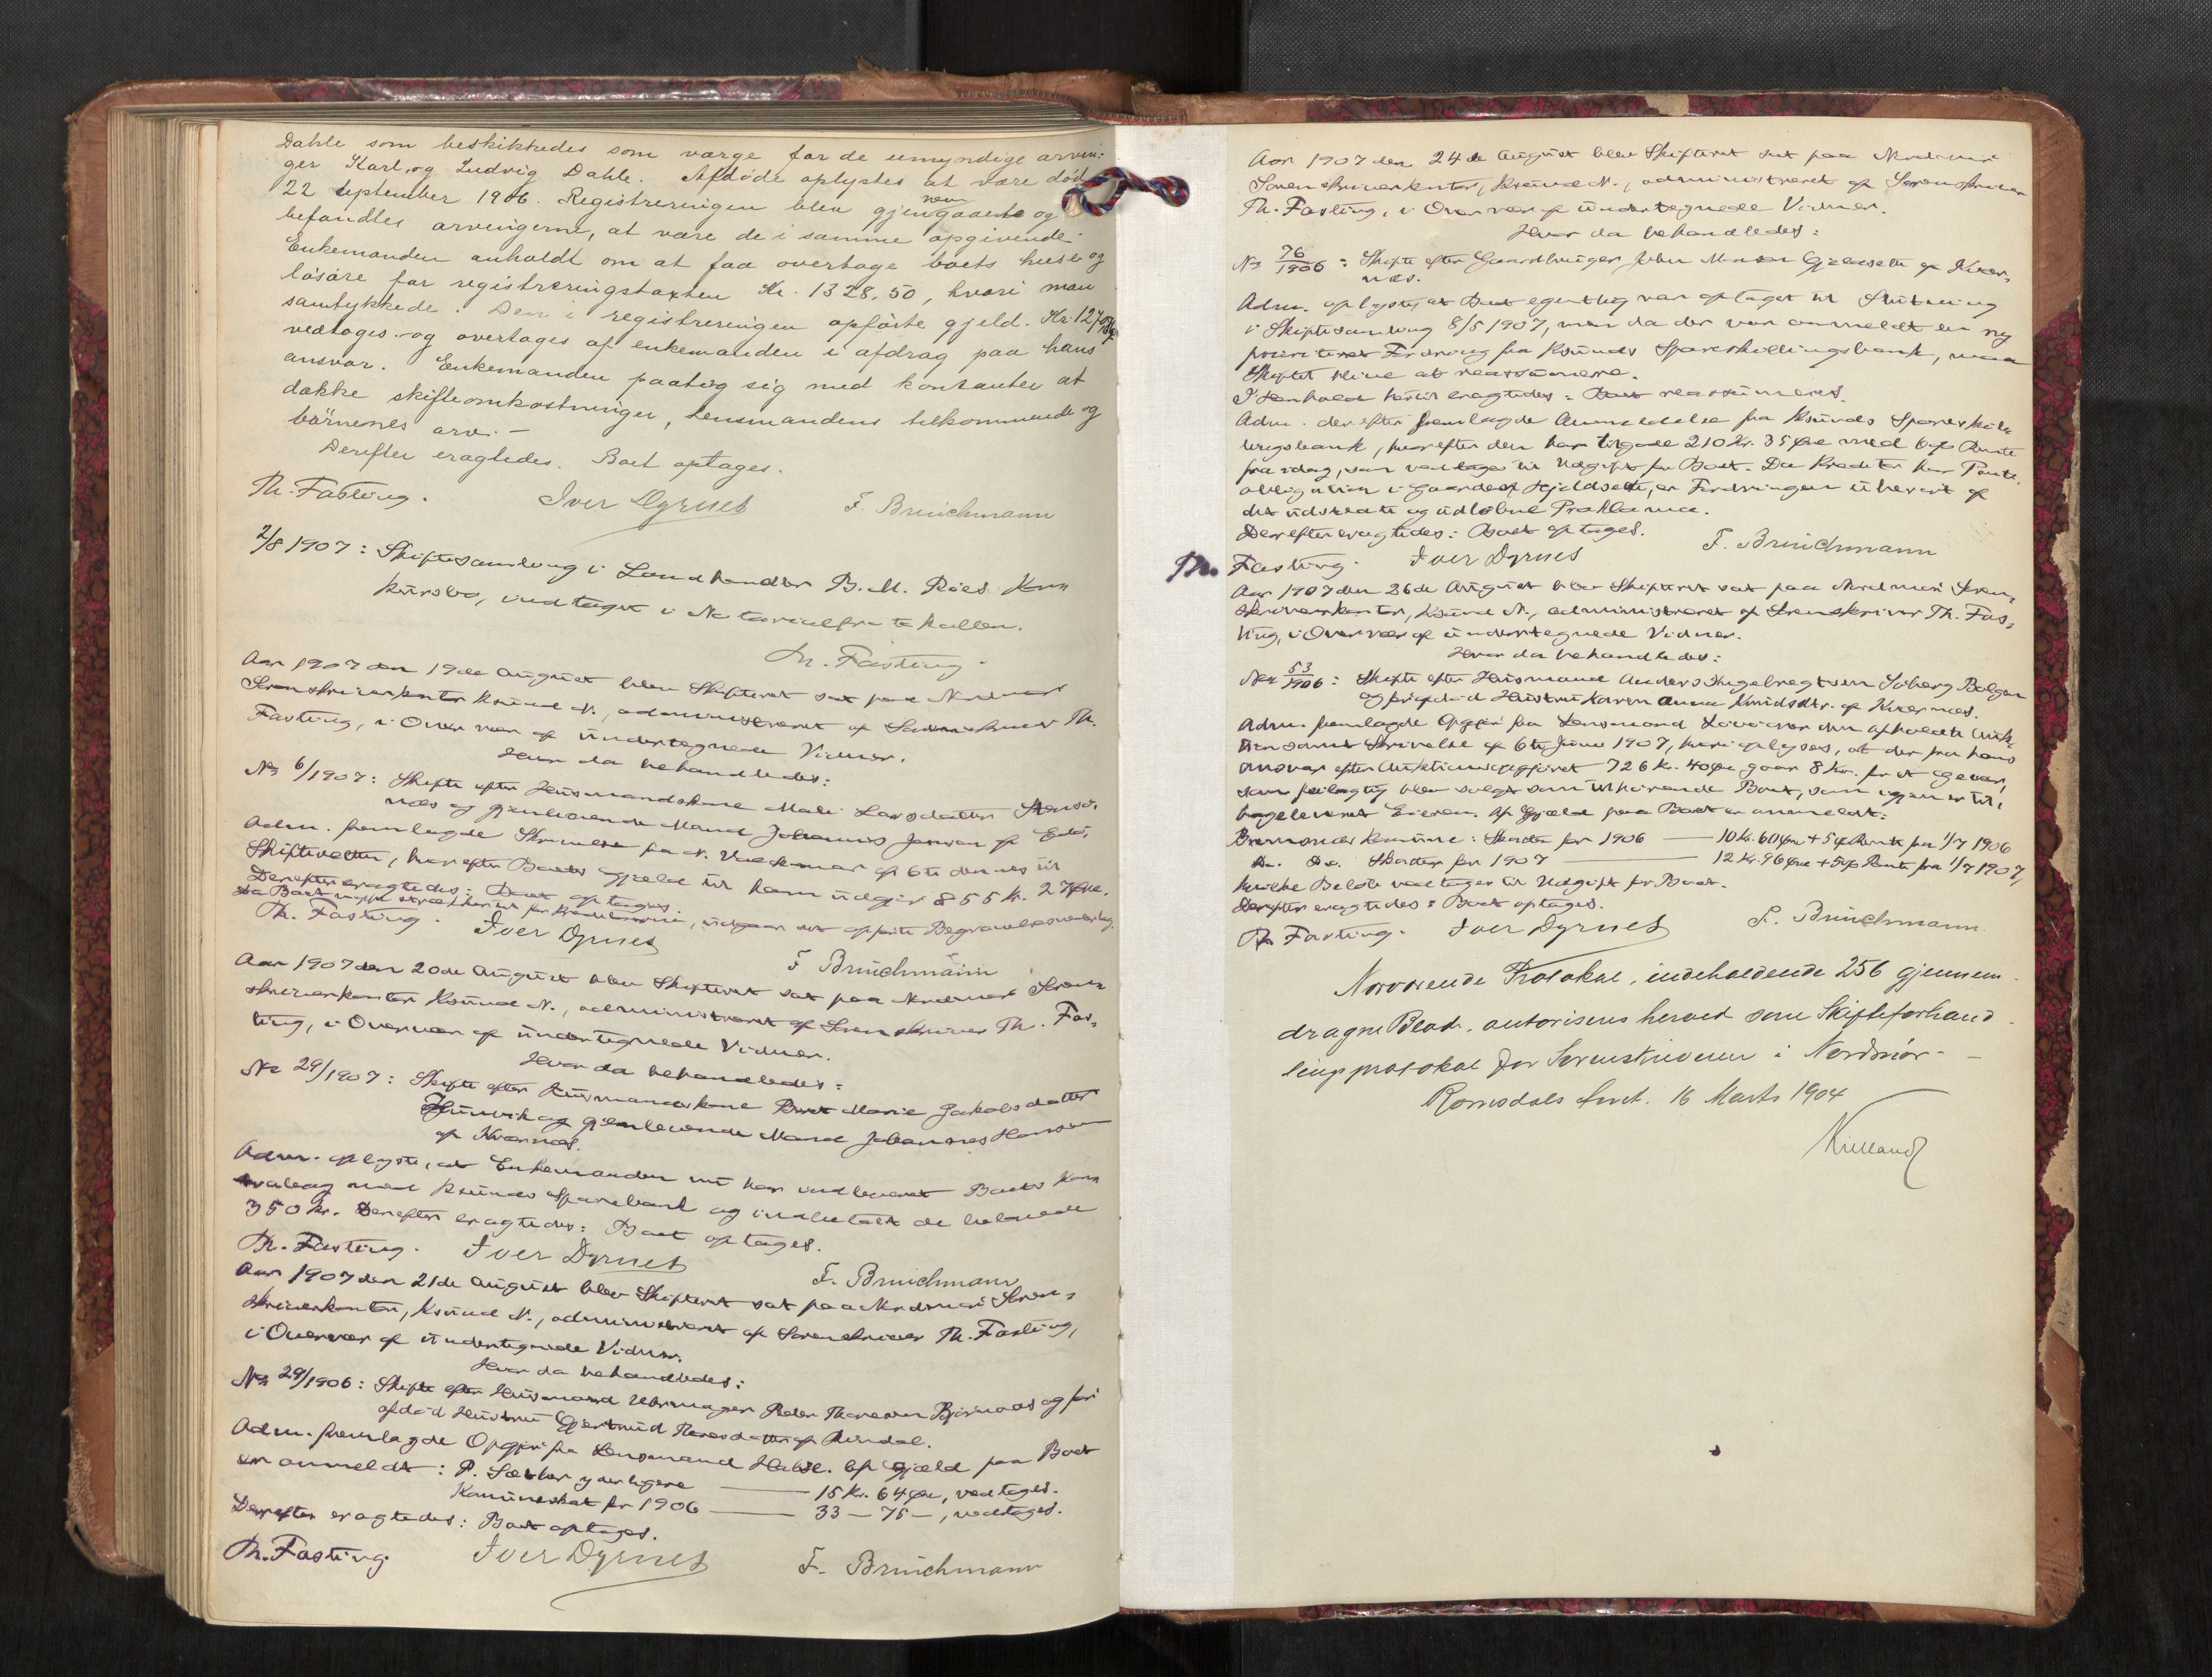 Dahle som beskikkedes som værge for de umyndige arvin-
ger Karl, og Ludvig Dahle. Afdöde oplystes at være död
22 september 1906. Registreringen blev gjennemgaaet og
befandtes arvingerne, at være de i samme opgivende.
Enkemanden anholdt om at faa overtage boets huse og
lösöre for registreringstaxten Kr. 1328,50, hvori man
samtykkede. Den i registreringen opförte gjeld. Kr. 127,
vedtoges og overtages af enkemanden i afdrag paa hans
ansvar. Enkemanden paatog sig med kontanter at
dække skifteomkostninger, Lensmandens tilkommende og
börnenes arv. -
Derefter eragtedes. Boet optages.
Th. Fasting. Iver Dyrnes F. Brüchmann
2/8 1907: Skiftesamling i Landhandler B. M. Röes Kon-
kursbo, indtaget i Notarialprotokollen.
Th. Fasting.
Aar 1907 den 19de August blev Skifteret sat paa Nordmør
Sorenskriverkontor Ksund N., administreret af Sorenskriver Th.
Fasting, i Overvær af undertegnede Vidner.
Hvor da behandledes:
No 6/1907: Skifte efter Husmandskone Mali Larsdatter Stensö-
næs og gjenlevende Mand Johannis Jensen af Edö.
Adm. fremlagde Skrivelse fra N. Volckmar af 6te dennes til
Skifteretten, hvorefter Boets gjæld til ham udgjør 855 kr. 27 øre.
Derefter eragtedes: Boet optages.
Da Boet neppe strækker til for Kreditorerne, udgaar det opførte Begravelsesudlæg.
Th. Fasting. Iver Dyrnes
F Brüchmann
Aar 1907 den 20de August blev Skifteret sat paa Nordmør Soren-
skriverkontor Ksund N., administreret af Sorenskriver Th. Fas-
ting, i Overvær af undertegnede Vidner.
Hvor da behandledes:
No 29/1907: Skifte efter Husmandskone Beret Marie Jakobsdatter
og gjenlevende Mand Johannes Hansen
af Kværnæs.
Adm. oplyste, at Enkemanden nu har indleveret Boets Kon-
trabog med Ksunds Sparebank og indbetalt de laante
350 kr. Derefter eragtedes: Boet optages.
Th. Fasting. Iver Dyrnes
F. Brüchmann
Aar 1907 den 21de August blev Skifteret sat paa Nordmør Soren-
skriverkontor, Ksund N., administreret af Sorenskriver Th. Fasting,
i Overvær af undertegnede Vidner.
Hvor da behandledes:
No 29/1906: Skifte efter Husmand Uhrmager Peder Thoresen Bjørnaas og før
afdød Hustru Gjertrud Toresdatter af Rindal.
Adm. fremlagde Opgjør fra Lensmand Halse. Af Gjæld paa Boet
er anmeldt: P. Sæther yderligere — 15 Kr. 64 øre, vedtages.
Kommuneskat for 1906 — 33 - 75 -, vedtages.
Derefter eragtedes: Boet optages.
Th. Fasting. Iver Dyrnes F. Brüchmann
Aar 1907 den 24de August blev Skifteret sat paa Nordmør
Sorenskriverkontor, Ksund N., administreret af Sorenskriver
Th. Fasting, i Overvær af undertegnede Vidner.
Hvor da behandledes:
No 76/1906: Skifte efter Gaardbruger John Gjeldseth af Kvær-
næs.
Adm. oplyste, at Boet egentlig var optaget til Slutning
i Skiftesamling 8/5 1907, men da der var anmeldt en ny
prioriteret Fordring fra Ksunds Spareskillingsbank, maa
Skiftet blive at reassumere.
I Henhold hertil eragtedes: Boet reassumeres.
Adm. derefter fremlagde Anmeldelse fra Ksunds Spareskil-
lingsbank, hvorefter den har tilgode 210 Kr. 35 øre med 6 % Rente
fra idag, som vedtages til Udgift for Boet. Da Kreditor har Pante-
obligation i Gaarden Gjeldseth, er Fordringen uberørt af
det udstedte og udløbne Proklama.
Derefter eragtedes: Boet optages.
Th. Fasting. Iver Dyrnes F. Brüchmann
Aar 1907 den 26de August blev Skifteret sat paa Nordmør Soren-
skriverkontor, Ksund N., administreret af Sorenskriver Th. Fas-
ting, i Overvær af undertegnede Vidner.
Hvor da behandledes:
No 53/1906: Skifte efter Husmand Anders Ingebregtsen Søberg Bolgen
og førafdød Hustru Karen Anna Knudsdtr. af Kværnæs.
Adm. fremlagde Opgjør fra Lensmand over den afholdte Auk-
tion samt Skrivelse af 6te Juni 1907, hvori oplyses, at der fra hans
Ansvar efter Auktionsopgjøret 726 Kr. 40 øre gaar 8 Kr. for et Gevær,
som feilagtig blev solgt som tilhørende Boet, som igjen er til-
bageleveret Eieren. Af Gjæld paa Boet er anmeldt:
Bremsnes Kommune: Skatter for 1906 — 10 Kr. 60 øre + 5 % Rente fra 1/7 1906
Do. Do. Skatter for 1907 — 12 Kr. 96 øre + 5 % Rente fra 1/7 1907,
hvilke Beløb vedtages til Udgift for Boet.
Derefter eragtedes: Boet optages.
Th. Fasting. Iver Dyrnes F. Brüchmann
Nærværende Protokol, indeholdende 256 gjennem-
dragne Blade, autoriseres herved som Skifteforhand-
lingsprotokol for Sorenskriveren i Nordmør. -
Romsdals Amt. 16 Marts 1904
Kielland